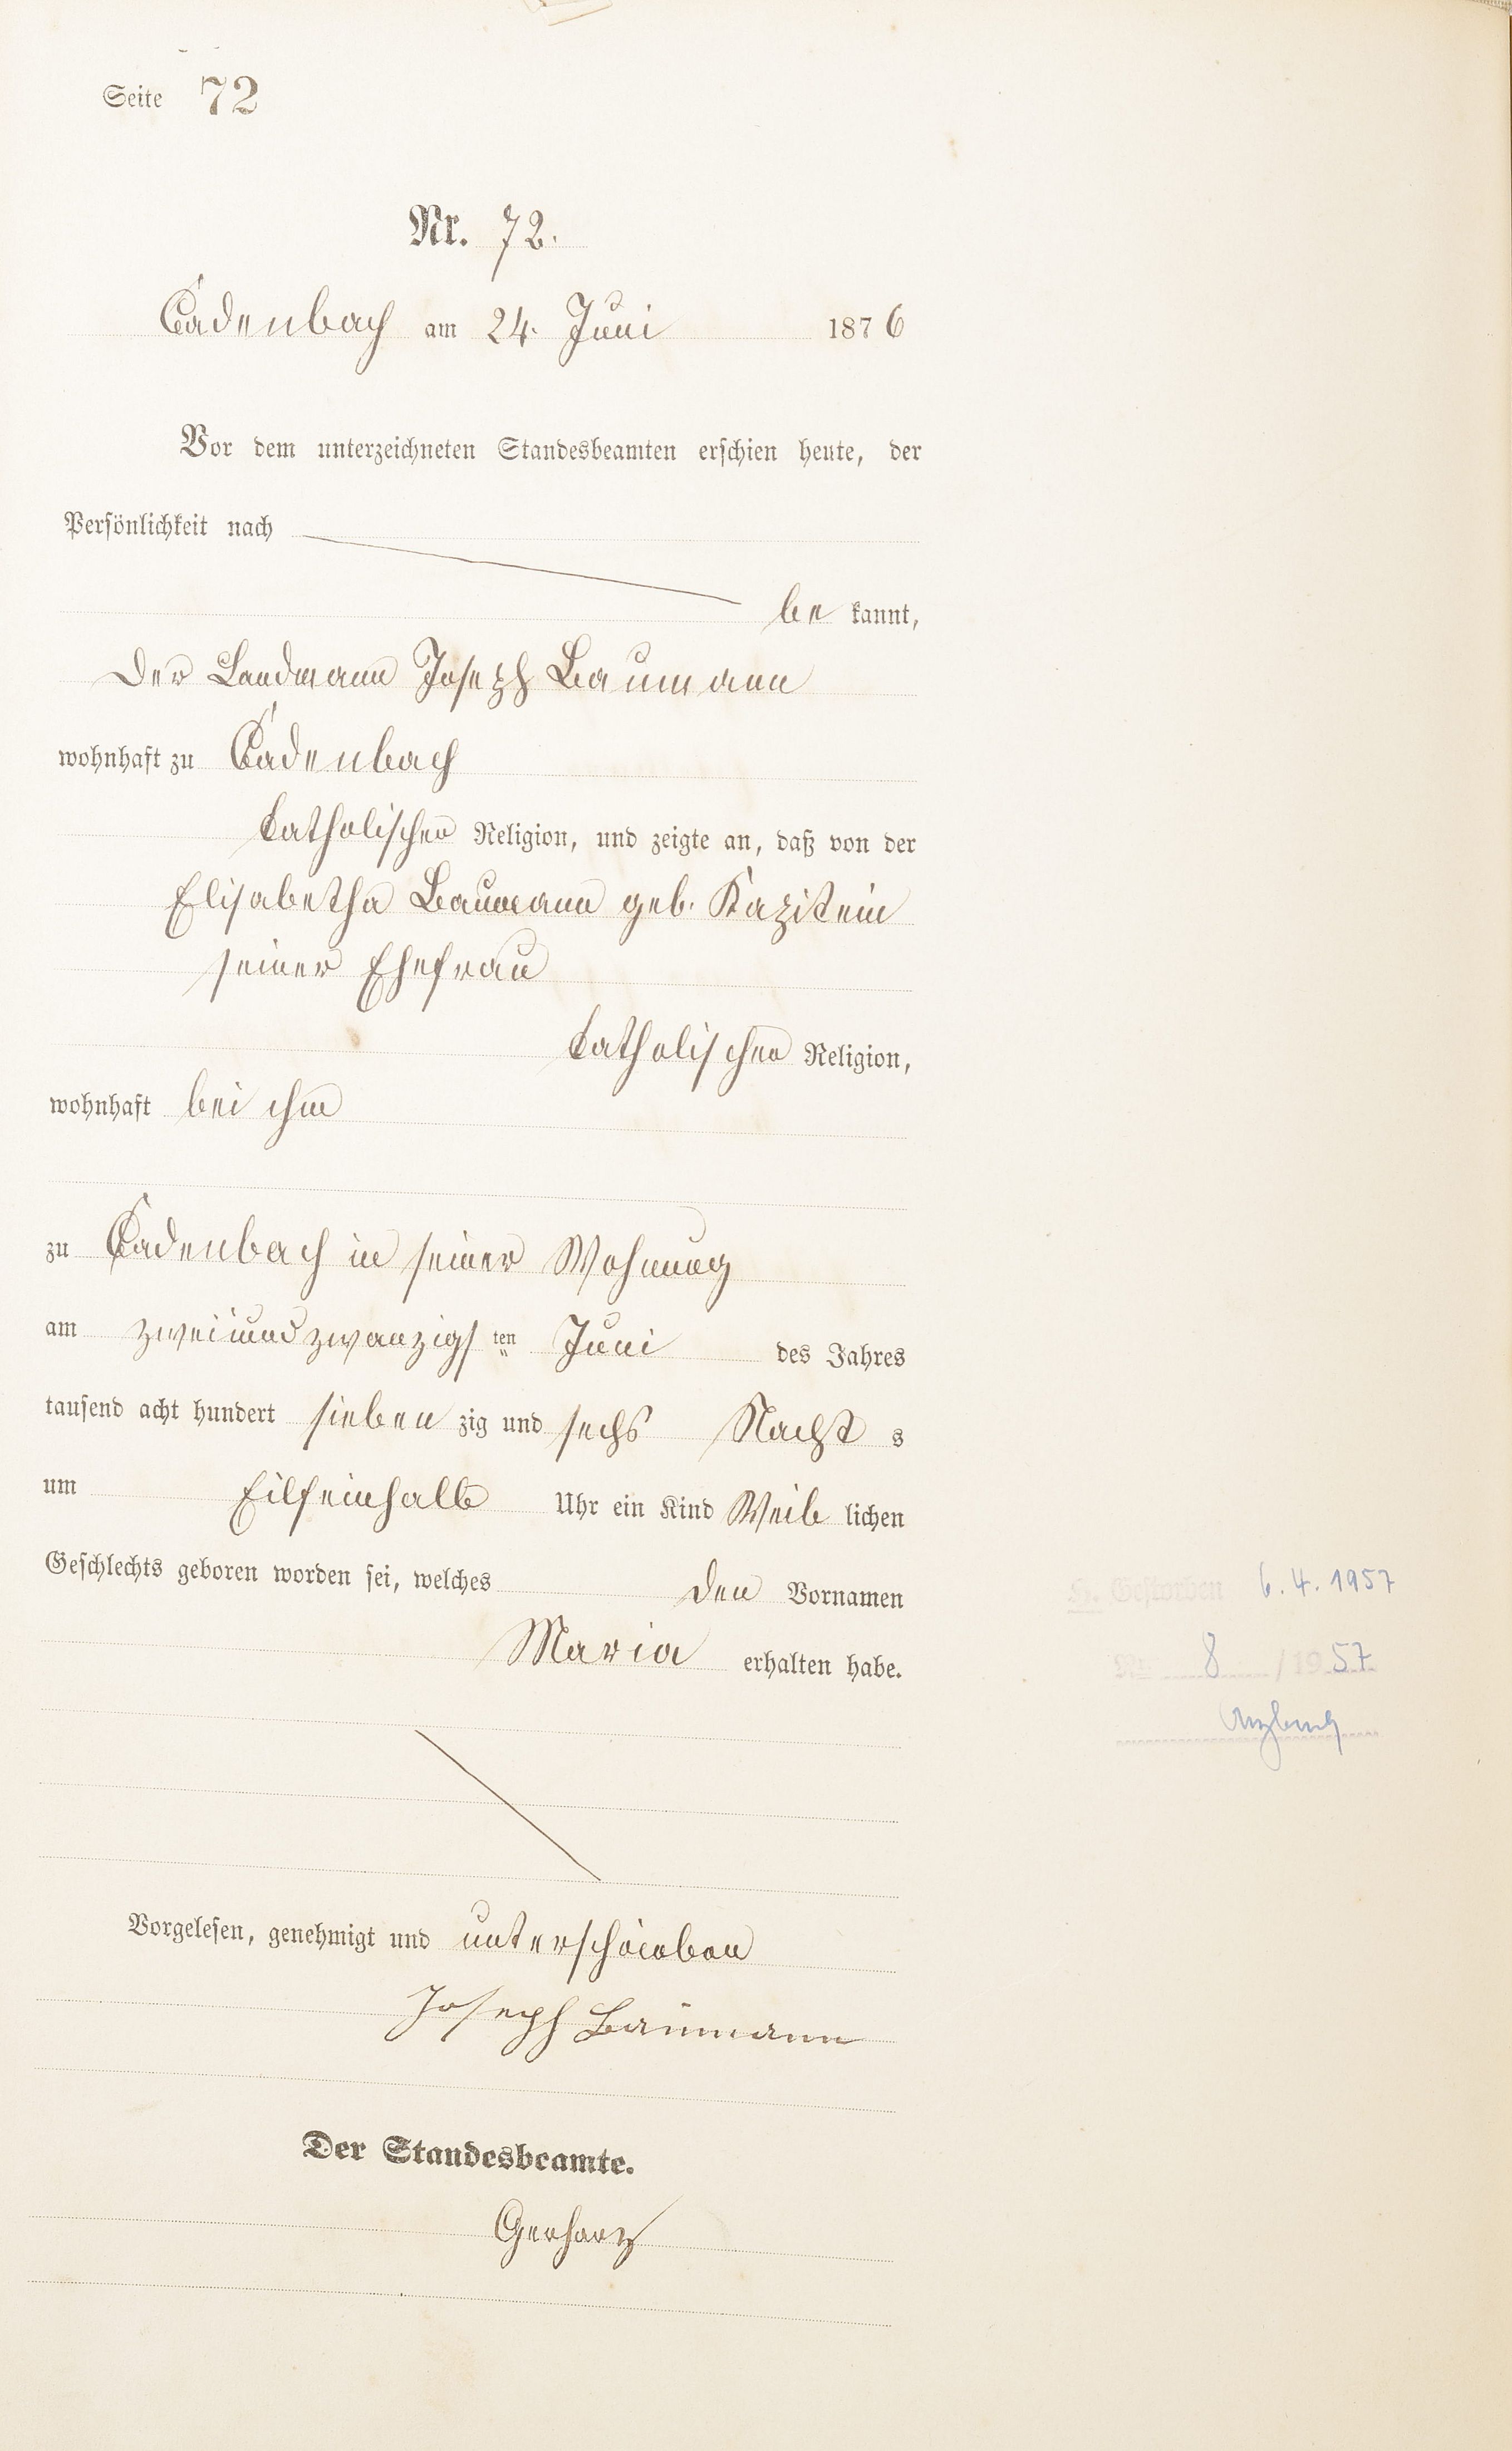 Seite 72
Nr. 72.
Cadenbach am 24. Juni 1876
Vor dem unterzeichneten Standesbeamten erschien heute, der
Persönlichkeit nach
be kannt,
der Landmann Joseph Baumann
wohnhaft zu Cadenbach
katholischer Religion, und zeigte an, daß von der
Elisabetha Baumann geb. Kazitein
seiner Ehefrau
katholischer Religion,
wohnhaft bei ihm
zu Cadenbach in seiner Wohnung
am zweiundzwanzigs ten Juni des Jahres
tausend acht hundert sieben zig und sechs Nacht s
um Eilfeinhalb Uhr ein Kind Weib lichen
Geschlechts geboren worden sei, welches den Vornamen
Maria erhalten habe.
H. Gestorben 6.4.1957
Nr. 8 /1957
Vorgelesen, genehmigt und unterschrieben
Joseph Baumann
Der Standesbeamte.
Gerharz